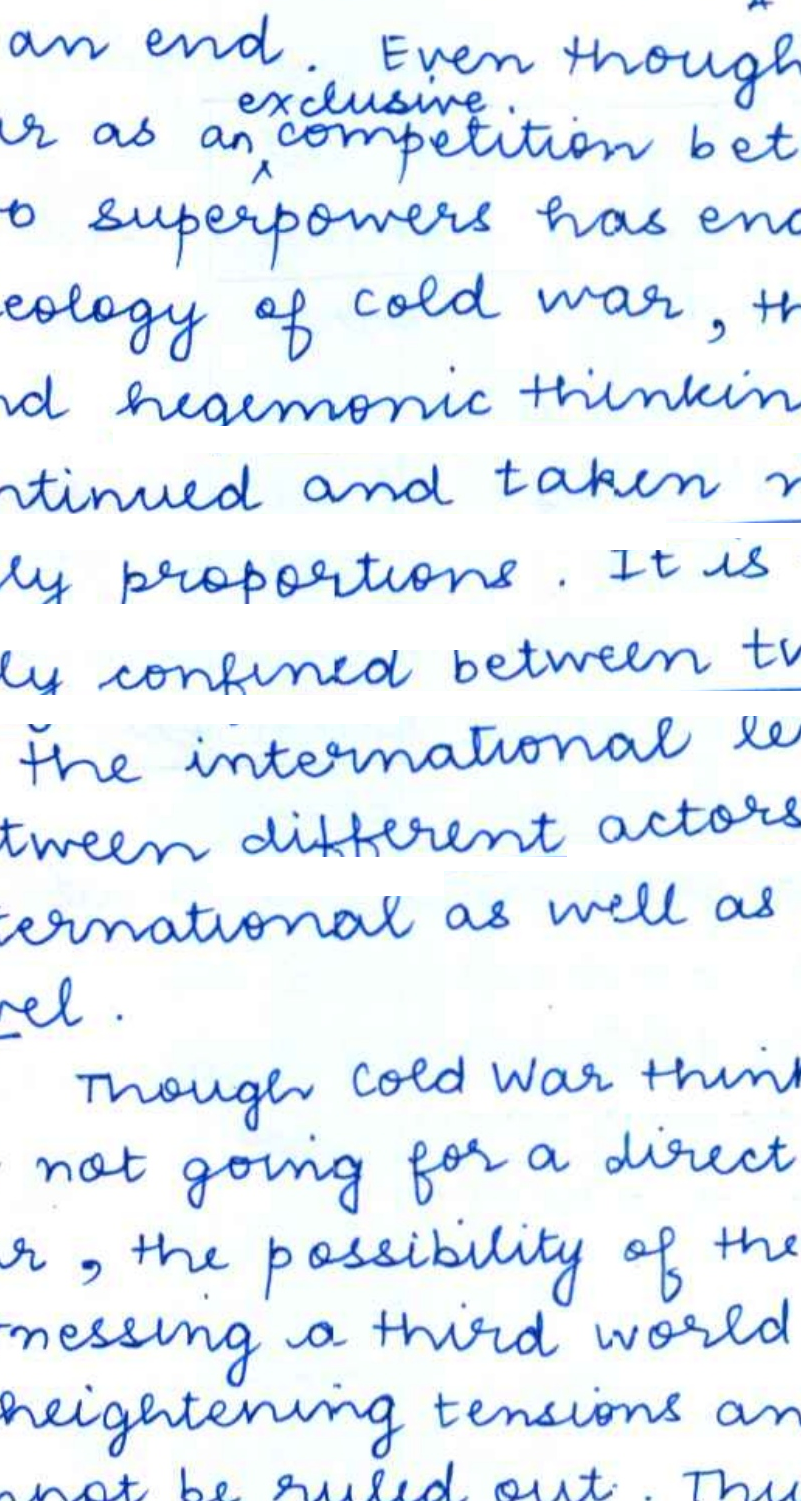 an end. Even though
exclusive.
ur as an ‸ competition bet
o superpowers has end
eology of cold war, th
nd hegemonic thinkin
ntinued and taken n
ly proportions. It is
ly confined between tw
the international le
tween different actors
ternational as well as
vel.
Though Cold War think
not going for a direct
ar, the possibility of the
nessing a third world
heightening tensions an
nnot be ruled out. Thu